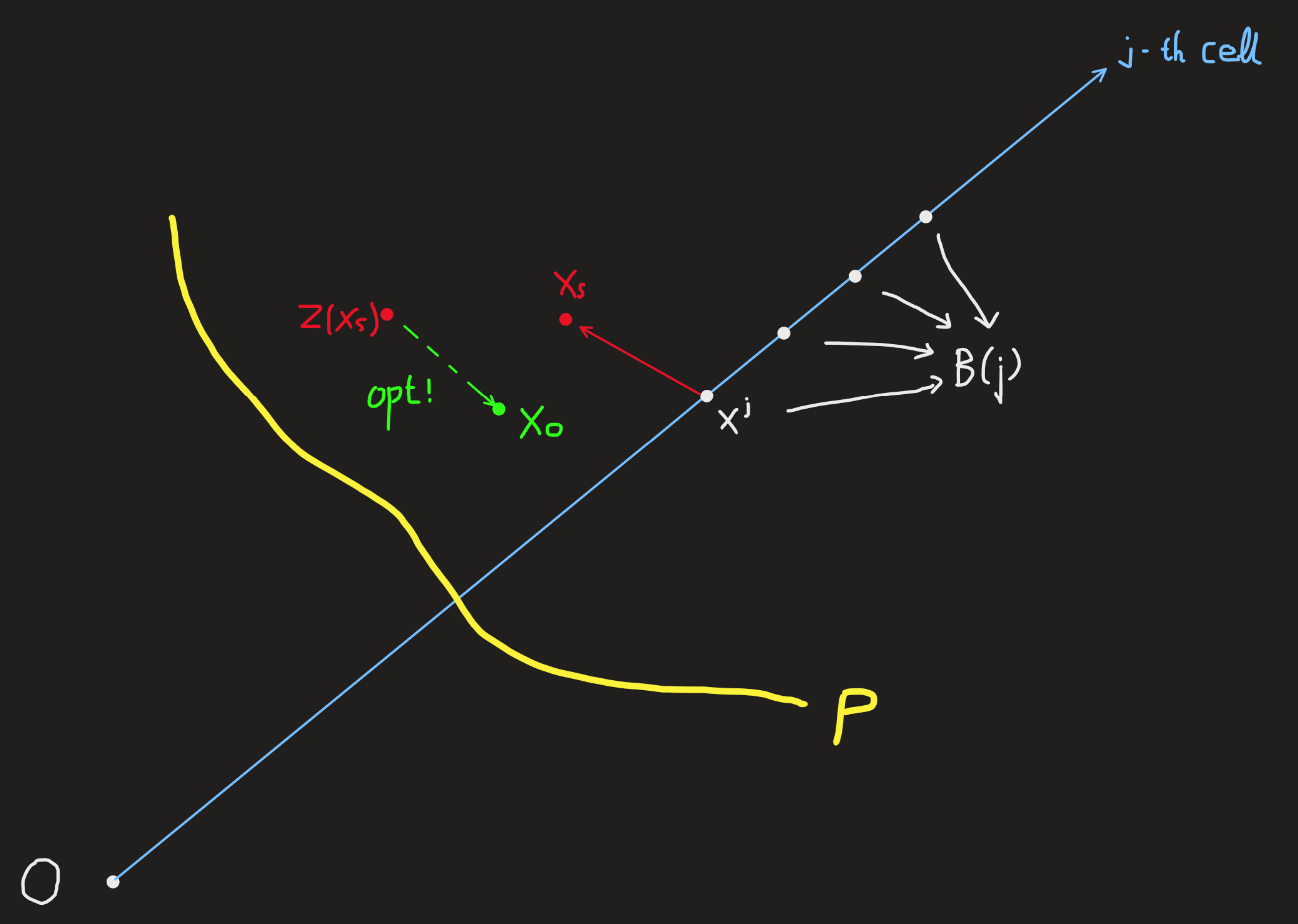 j-th cell
Xs
Z(Xs)
B(j)
opt!
X₀
xʲ
P
O